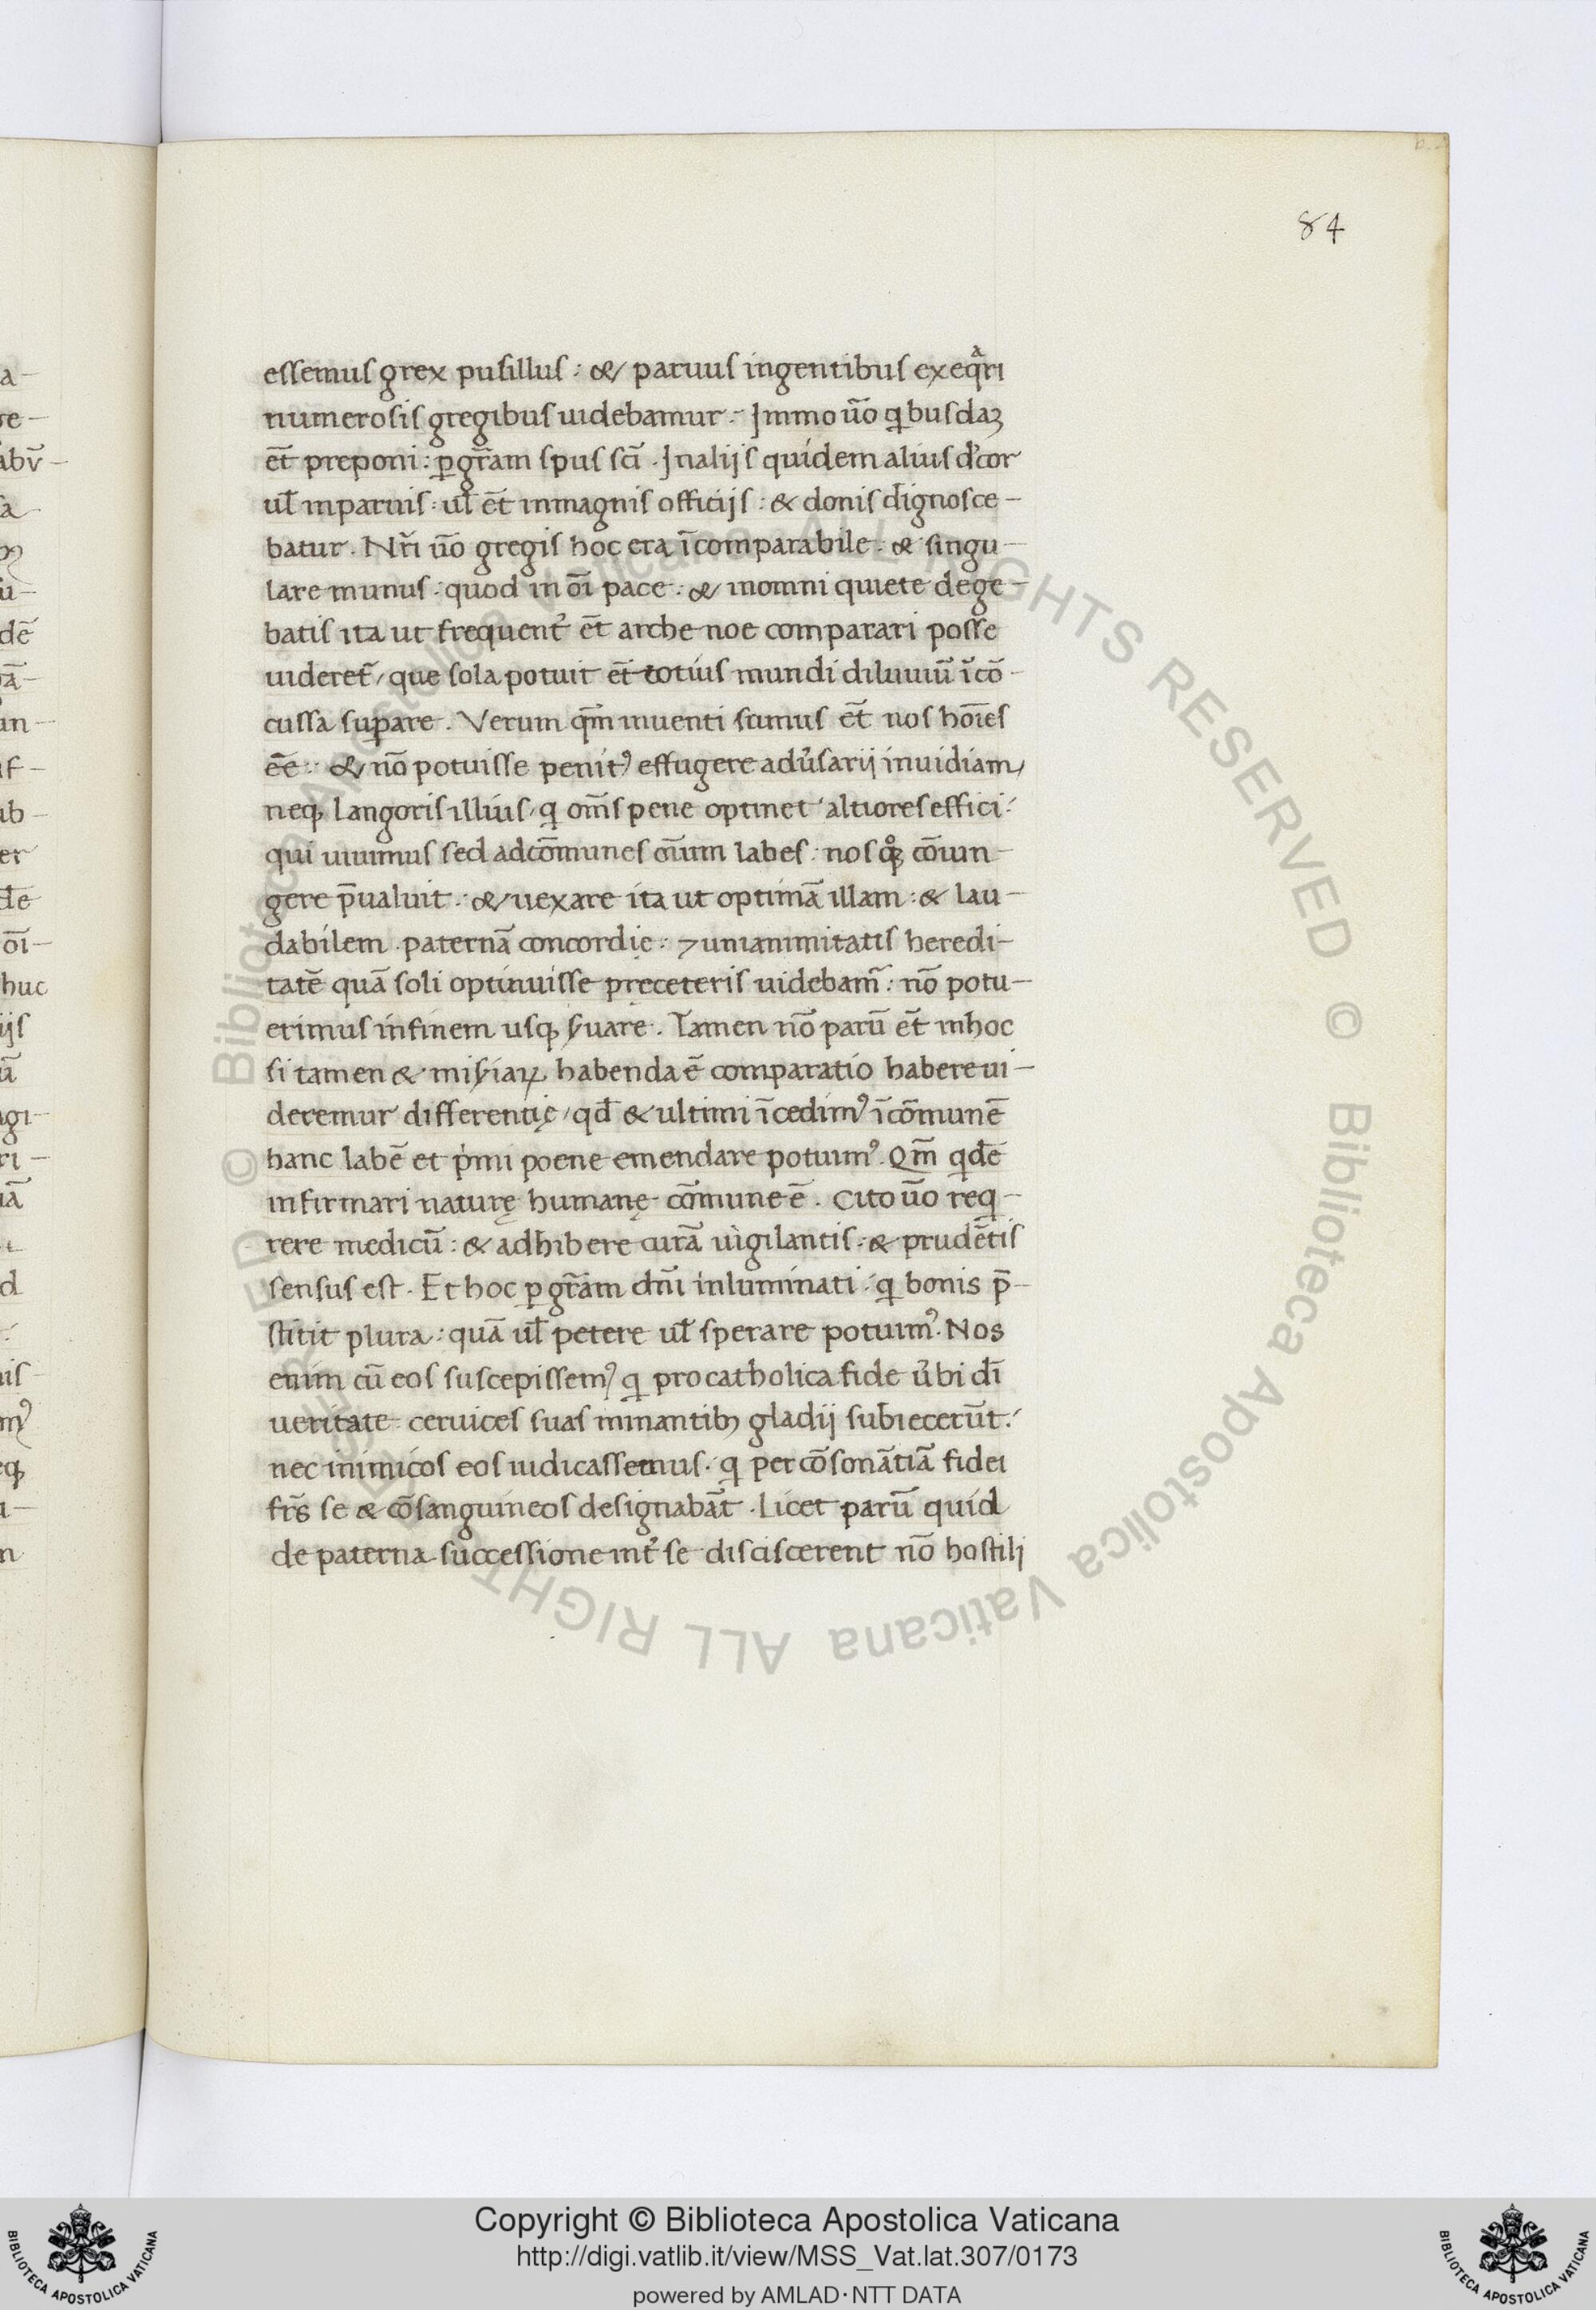 84
essemus grex pusillus : & paruus ingentibus exeqᷓri
numerosis gregibus uidebamur · Jmmo ũo qbusdaꝫ
et̃ preponi : ꝑ gr̃am spus sc̃i · Jn alijs quidem alius dᵒcor
ul̃ in paruis · ul̃ et̃ in magnis officijs : & donis dignosce-
batur . Nr̃i ũo gregis hoc era ĩcomparabile · & singu-
lare munus · quod in õi pace : & in omni quiete dege-
batis ita ut frequent᷑ et̃ arche noe comparari posse
uideret̃, que sola potuit et̃ totius mundi diluuiũ ĩcõ-
cussa suꝑare . Verum qm̃ inuenti sumus et̃ nos hoĩes
eẽ · & nõ potuisse penitꝰ effugere adu᷑sarij inuidiam,
neqꝫ langoris illius, q om̃s pene optinet altiores effici :
qui uiuimus sed ad cõmunes om̃ium labes : nos qᵒqꝫ cõiun-
gere p̃ualuit · & uexare ita ut optimã illam : & lau-
dabilem paternã concordię : ⁊ unianimitatis heredi-
tatẽ quã soli optinuisse pręceteris uidebam̃ : nõ potu-
erimus in finem usqꝫ ẜuare . Tamen nõ parũ et̃ in hoc
si tamen & miẜiaꝝ habenda ẽ comparatio habere ui-
deremur differentię, qd̃ & ultimi ĩcedimꝰ ĩ cõmunẽ
hanc labẽ et pⁱmi poene emendare potuimꝰ . Qm̃ qdẽ
infirmari naturę humanę cõmune ẽ . Cito ũo req-
rere medicũ : & adhibere curã uigilantis : & prudẽtis
sensus est . Et hoc ꝑ gr̃am dñi inluminati : q bonis p̃-
stitit plura : quã ul̃ petere ul̃ sperare potuimꝰ . Nos
enim cũ eos suscepissemꝰ q pro catholica fide u᷑bi dĩ
ueritate ceruices suas minantibꝫ gladij subiecerũt :
nec inimicos eos iudicassemus · q per cõsonãtiã fidei
fr̃s se & cõsanguineos designabãt . Licet parũ quid
de paterna successione int᷑ se disciscerent nõ hostili
Copyright © Biblioteca Apostolica Vaticana
http://digi.vatlib.it/view/MSS_Vat.lat.307/0173
powered by AMLAD·NTT DATA